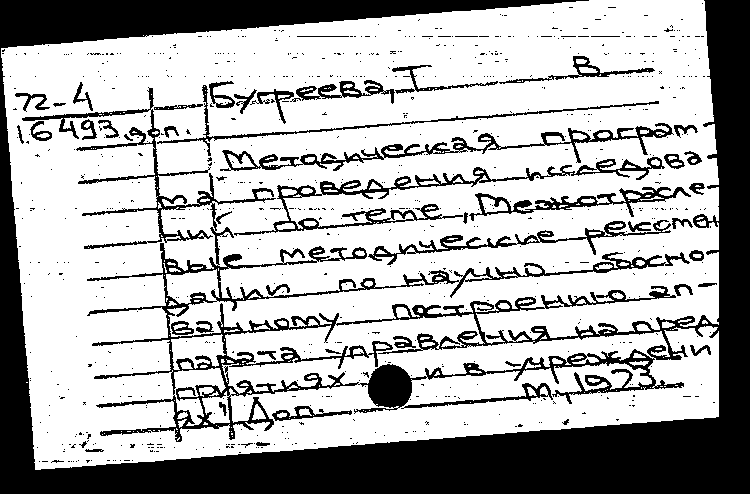 72-4
16493 доп.
Бугреева, Т В
Методическая програм-
ма проведения исследова-
ний по теме „Межотрасле-
вые методические рекомен
дации по научно обосно-
ванному построению ап-
парата управления на пред
приятиях и в учреждени
ях" Доп. М., 1973.